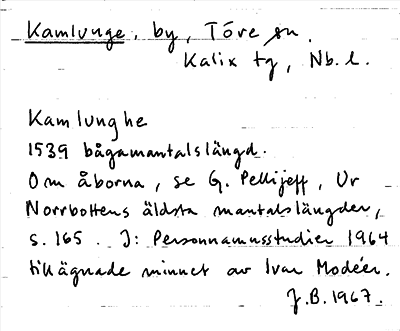 Kamlunge, by, Töre sn.
Kalix tg, Nb. l.
Kamlunghe
1539 bågamantalslängd.
Om åborna, se G. Pellijeff, Ur
Norrbottens äldsta mantalslängder,
s. 165. I: Personnamnsstudier 1964
tillägnade minnet av Ivar Modéer.
J.B. 1967.